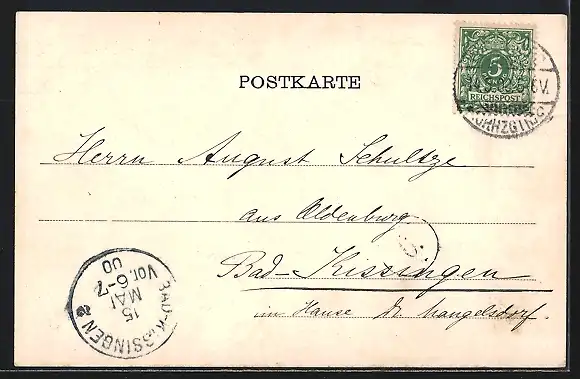 POSTKARTE
5
REICHSPOST
Herrn August Schultze
aus Oldenburg
Bad-Kissingen
im Hause Dr Mangelsdorf.
BAD-KISSINGEN 2
15
MAI
Vor. 6-7
00